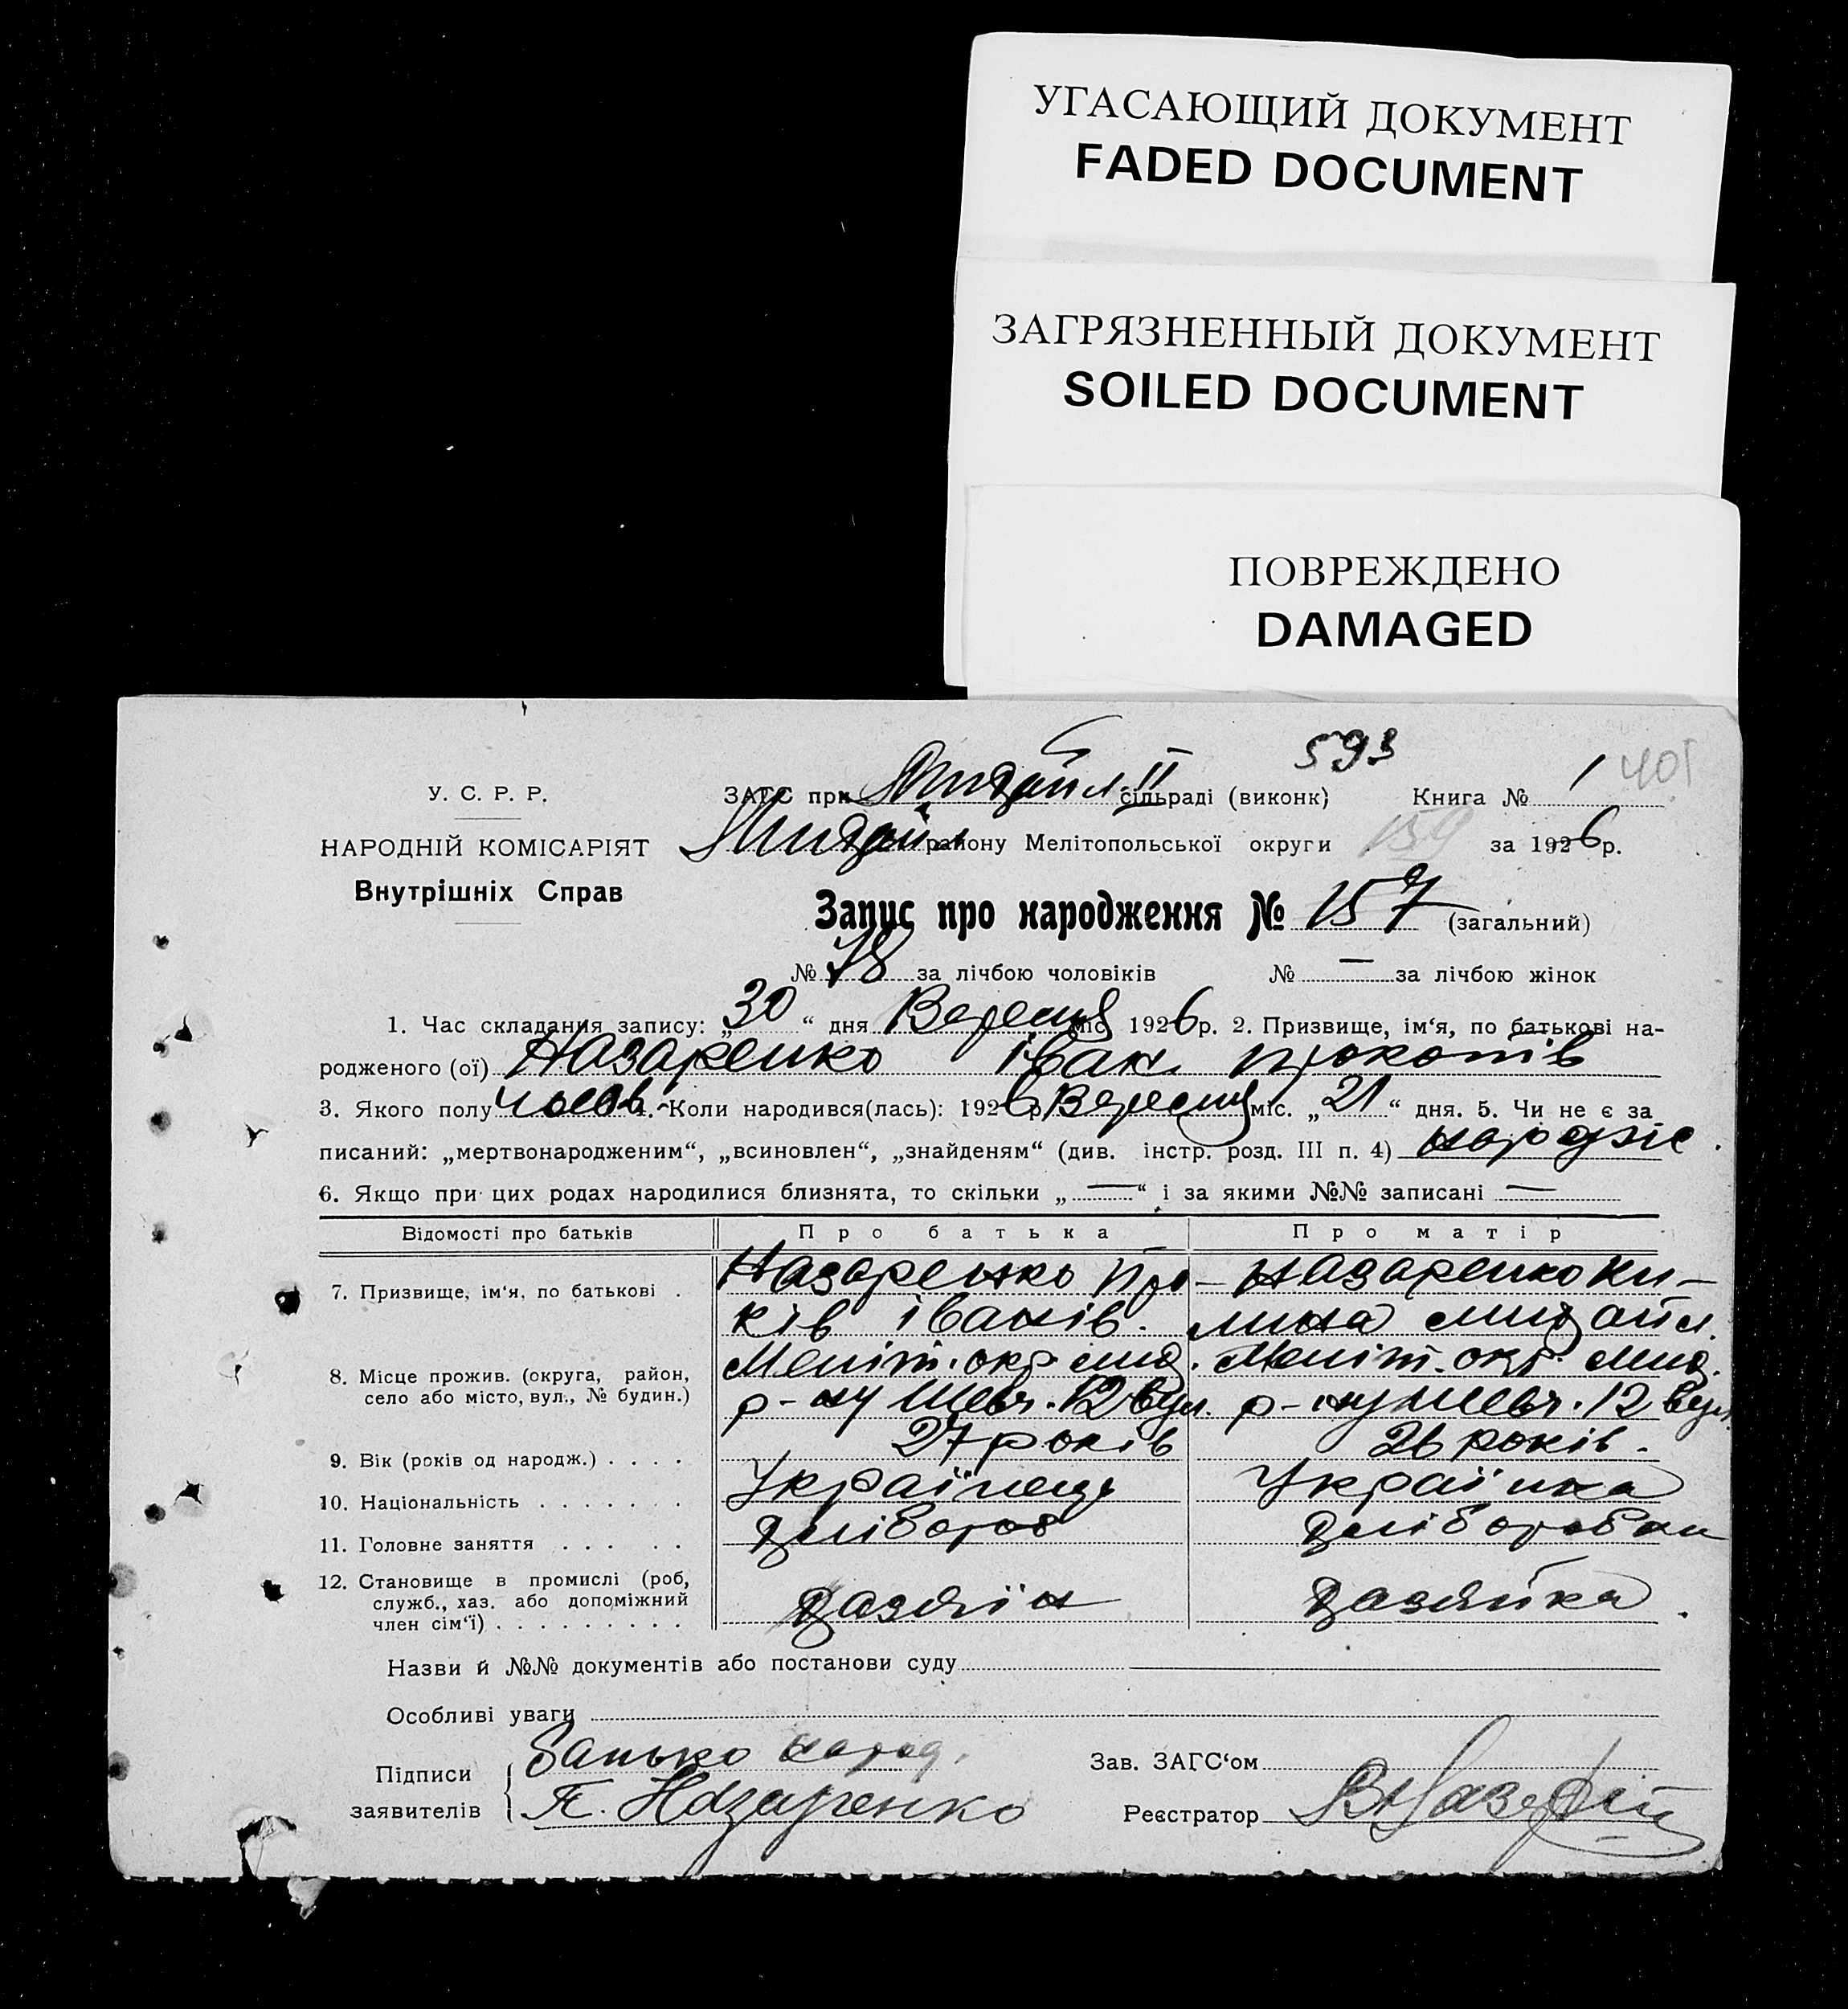 УГАСАЮЩИЙ ДОКУМЕНТ
FADED DOCUMENT
ЗАГРЯЗНЕННЫЙ ДОКУМЕНТ
SOILED DOCUMENT
ПОВРЕЖДЕНО
DAMAGED
593
401
У. С. Р. Р.
ЗАГС при Михайл. II сільраді (виконк) Книга № 1
НАРОДНІЙ КОМІСАРІЯТ
Михайл району Мелітопольської округи 159 за 1926р.
Внутрішніх Справ
Запис про народження № 157 (загальний)
№ 78 за лічбою чоловіків № — за лічбою жінок
1. Час складання запису: „30“ дня Вересня міс. 1926р. 2. Призвище, ім‘я, по батькові на-
родженого (ої) Назаренко Іван Прокопів
3. Якого полу чолов. 4. Коли народився(лась): 1926 р Вересня міс. „21“ дня. 5. Чи не є за
писаний: „мертвонародженим“, „всиновлен“, „знайденям“ (див. інстр. розд. III п. 4)
6. Якщо при цих родах народилися близнята, то скільки „—“ і за якими №№ записані —
Відомості про батьків Про батька Про матір
7. Призвище, ім‘я, по батькові . Назаренко Про- Назаренко Ки-
ків Іванів. лина Михайл.
8. Місце прожив. (округа, район, Меліт. окр мих. Меліт. окр. мих.
село або місто, вул., № будин.) р-ну Шевч. 12 вул. р-ну Шевч. 12 вул
9. Вік (років од народж.) . . . . 27 років 26 років.
10. Національність . . . . . . . Українець Українка
11. Головне заняття . . . . . хлібороб хліборобка
12. Становище в промислі (роб,
служб., хаз. або допоміжний хазяїн хазяйка.
член сім‘ї) . . . . . . . . .
Назви й №№ документів або постанови суду
Особливі уваги
Підписи Батько народ. Зав. ЗАГС‘ом
заявителів П. Назаренко Реєстратор